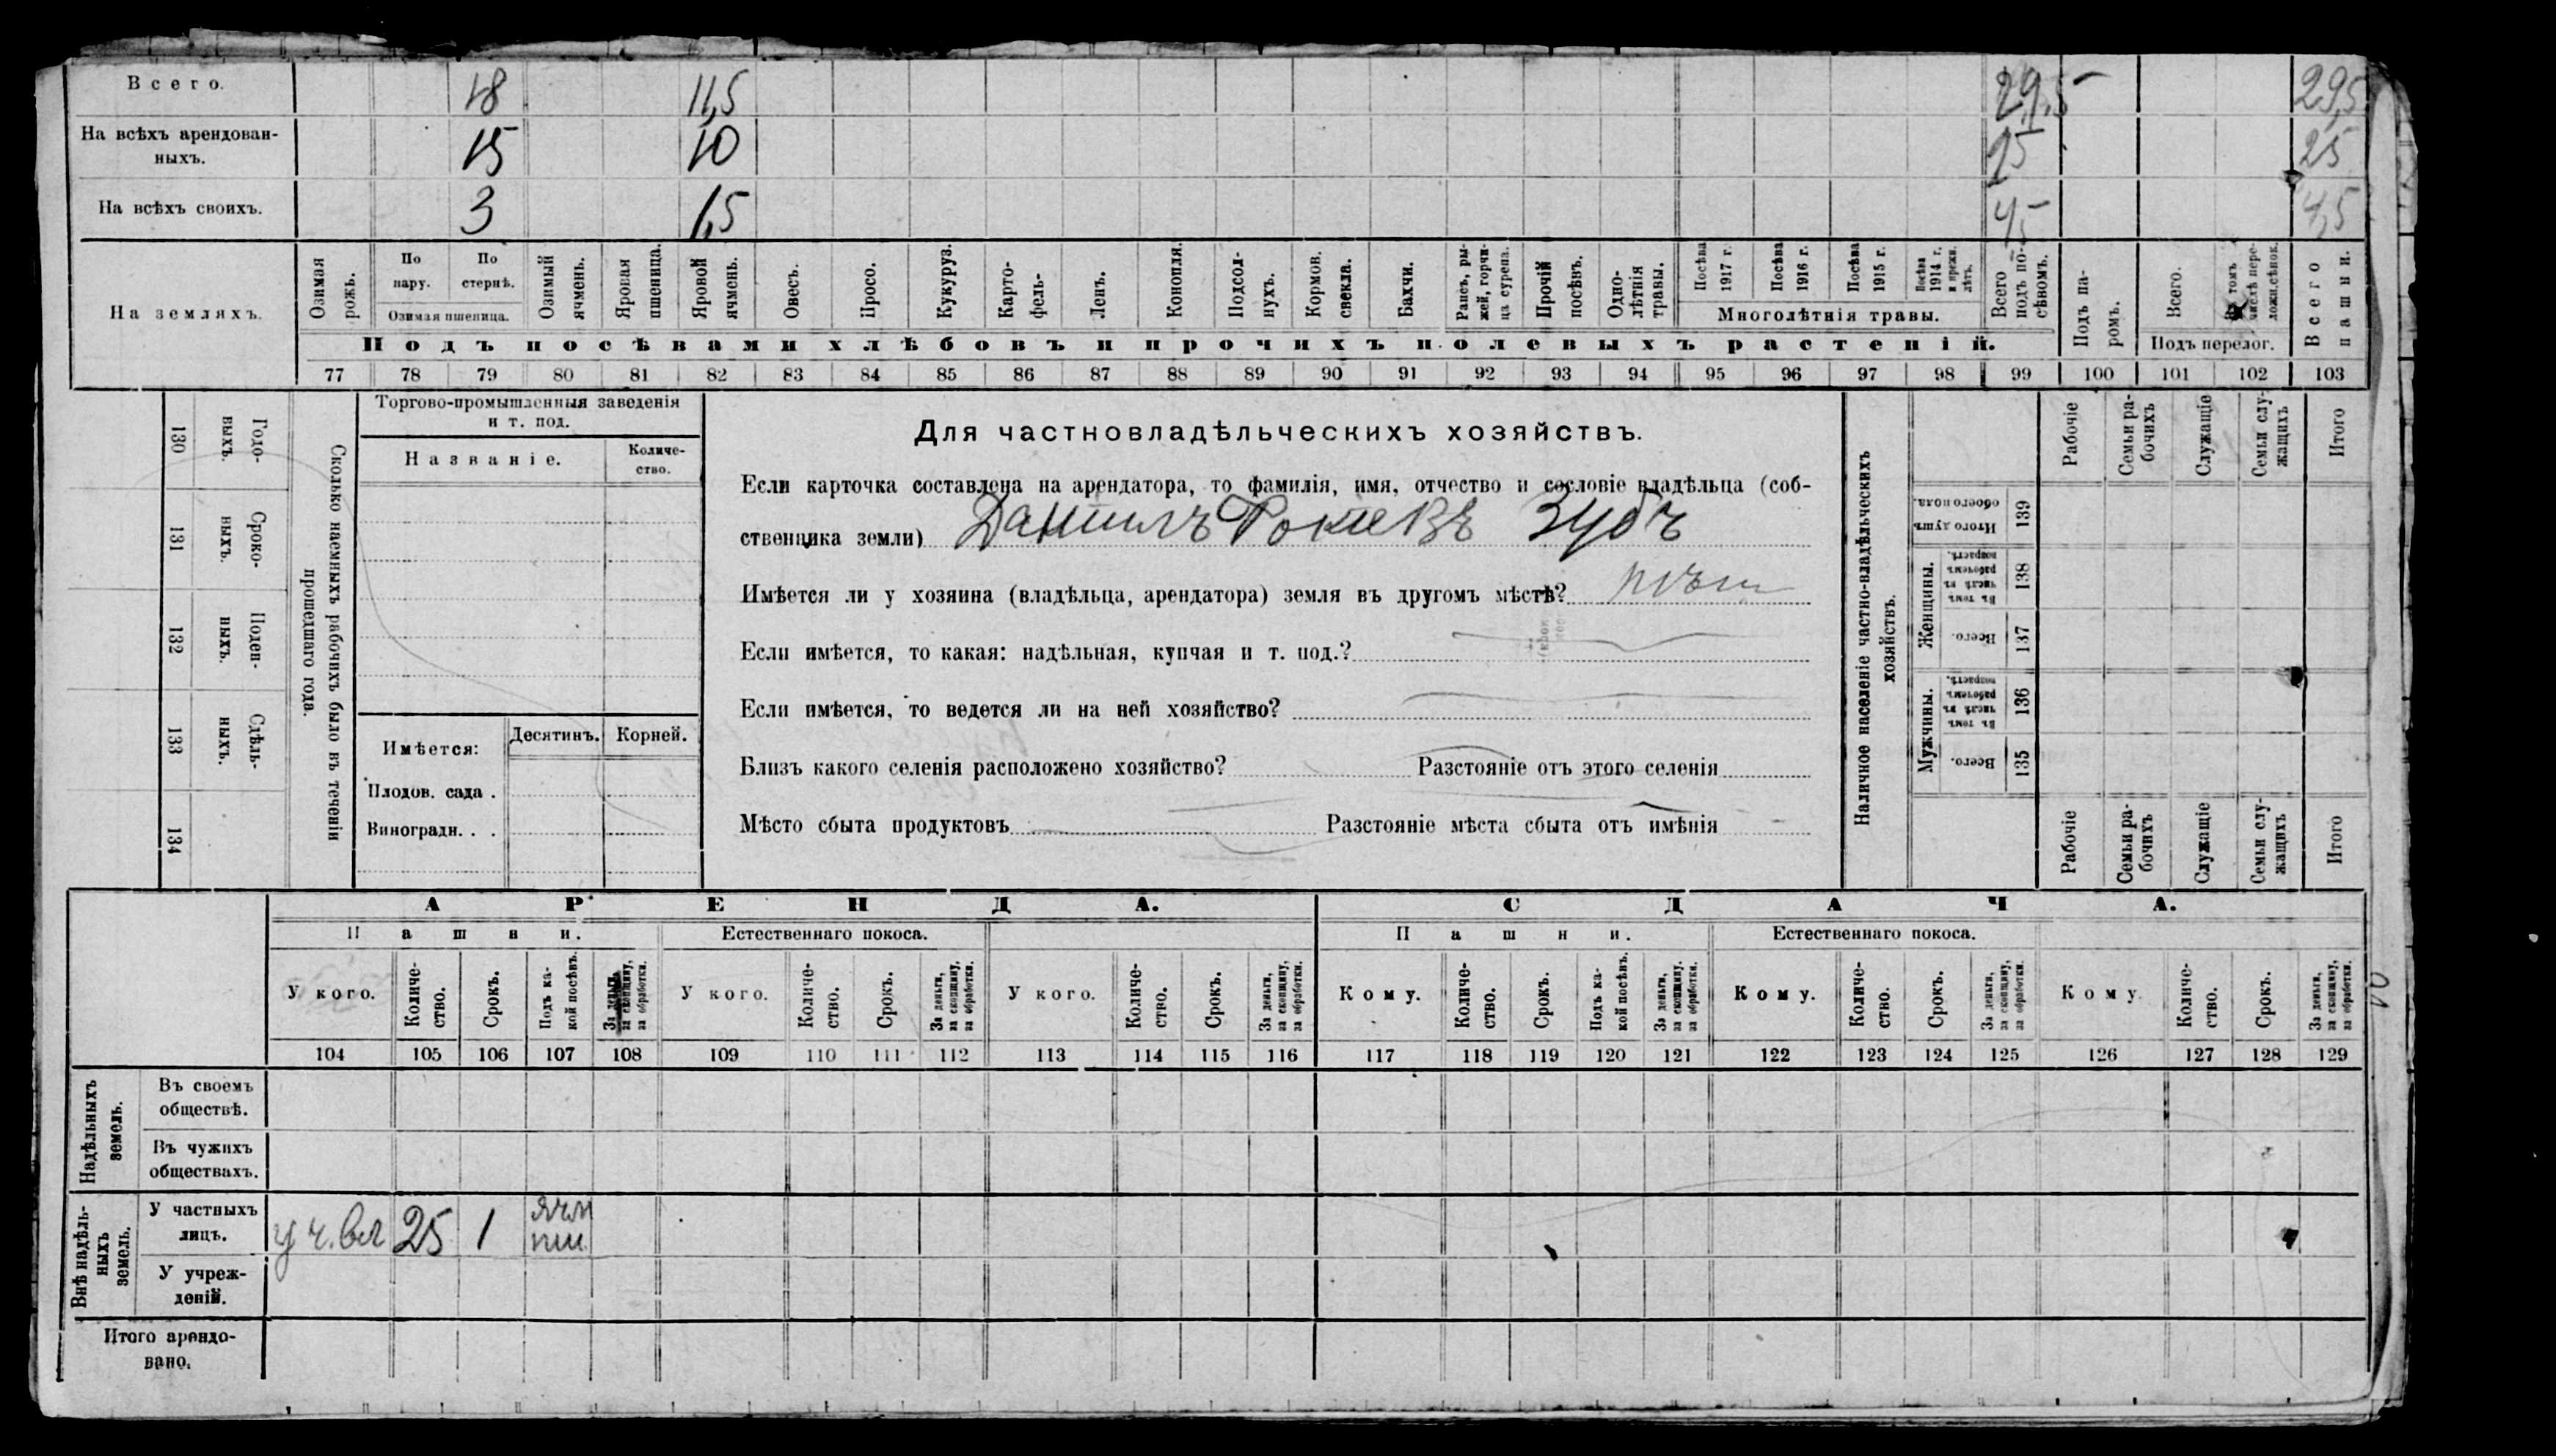 Всего. 18 11,5 29,5 29,5
На всѣхъ арендован-
ныхъ. 15 10 25 25
На всѣхъ своихъ. 3 1,5 4,5 4,5
На земляхъ.
Озимая рожь.
По пару.
По стернѣ.
Озимая пшеница.
Озимый ячмень.
Яровая пшеница.
Яровой ячмень.
Овесъ.
Просо.
Кукуруз.
Карто-
фель.
Ленъ.
Конопля.
Подсол-
нухъ.
Кормов. свекла.
Бахчи.
Рапсъ, ры-
жей, горчи-
ца сурепа.
Прочій посѣвъ.
Одно-
лѣтнія травы.
Посѣва 1917 г.
Посѣва 1916 г.
Посѣва 1915 г.
Посѣва 1914 г. и прежн. лѣтъ.
Многолѣтнія травы.
Всего подъ по-
сѣвомъ.
Подъ па-
ромъ.
Всего.
Въ томъ числѣ пере-
ложн.сѣнок.
Подъ перелог.
Всего пашни.
Подъ посѣвами хлѣбовъ и прочихъ полевыхъ растеній.
77 78 79 80 81 82 83 84 85 86 87 88 89 90 91 92 93 94 95 96 97 98 99 100 101 102 103
130 Годо-
выхъ.
131 Сроко-
ныхъ.
132 Поден-
ныхъ.
133 Сдѣль-
ныхъ.
134
Сколько наемныхъ рабочихъ было въ теченіи
прошедшаго года.
Торгово-промышленныя заведенія
и т. под.
Названіе.
Количе-
ство.
Имѣется:
Десятинъ. Корней.
Плодов. сада .
Виноградн. . .
Для частновладѣльческихъ хозяйствъ.
Если карточка составлена на арендатора, то фамилія, имя, отчество и сословіе владѣльца (соб-
ственника земли) Даніилъ Фокиевъ Зубъ
Имѣется ли у хозяина (владѣльца, арендатора) земля въ другомъ мѣстѣ? нѣт
Если имѣется, то какая: надѣльная, купчая и т. под.?
Если имѣется, то ведется ли на ней хозяйство?
Близъ какого селенія расположено хозяйство? Разстояніе отъ этого селенія
Мѣсто сбыта продуктовъ Разстояніе мѣста сбыта отъ имѣнія
Наличное населеніе частно-владѣльческихъ
хозяйствъ.
Рабочіе
Семьи ра-
бочихъ
Служащіе
Семьи слу-
жащихъ
Итого
Итого душъ
обоего пола. 139
Женщины.
Въ томъ
числѣ въ
рабочемъ
возрастѣ. 138
Всего. 137
Мужчины.
Въ томъ
числѣ въ
рабочемъ
возрастѣ. 136
Всего. 135
Рабочіе
Семьи ра-
бочихъ
Служащіе
Семьи слу-
жащихъ
Итого
АРЕНДА. СДАЧА.
Пашни. Естественнаго покоса. Пашни. Естественнаго покоса.
У кого.
Количе-
ство.
Срокъ.
Подъ ка-
кой посѣвъ.
За деньги,
за скопщину,
за обработки.
У кого.
Количе-
ство.
Срокъ.
За деньги,
за скопщину,
за обработки.
У кого.
Количе-
ство.
Срокъ.
За деньги,
за скопщину,
за обработки.
Кому.
Количе-
ство.
Срокъ.
Подъ ка-
кой посѣвъ.
За деньги,
за скопщину.
за обработки.
Кому.
Количе-
ство.
Срокъ.
За деньги,
за скопщину,
за обработки.
Кому.
Количе-
ство.
Срокъ.
За деньги,
за скопщину,
за обработки.
104 105 106 107 108 109 110 111 112 113 114 115 116 117 118 119 120 121 122 123 124 125 126 127 128 129
Надѣльныхъ
земель.
Въ своемъ
обществѣ.
Въ чужихъ
обществахъ.
Внѣ надѣль-
ныхъ
земель.
У частныхъ
лицъ. у ч. вл 25 1 ячм
пш.
У учреж-
деній.
Итого арендо-
вано.